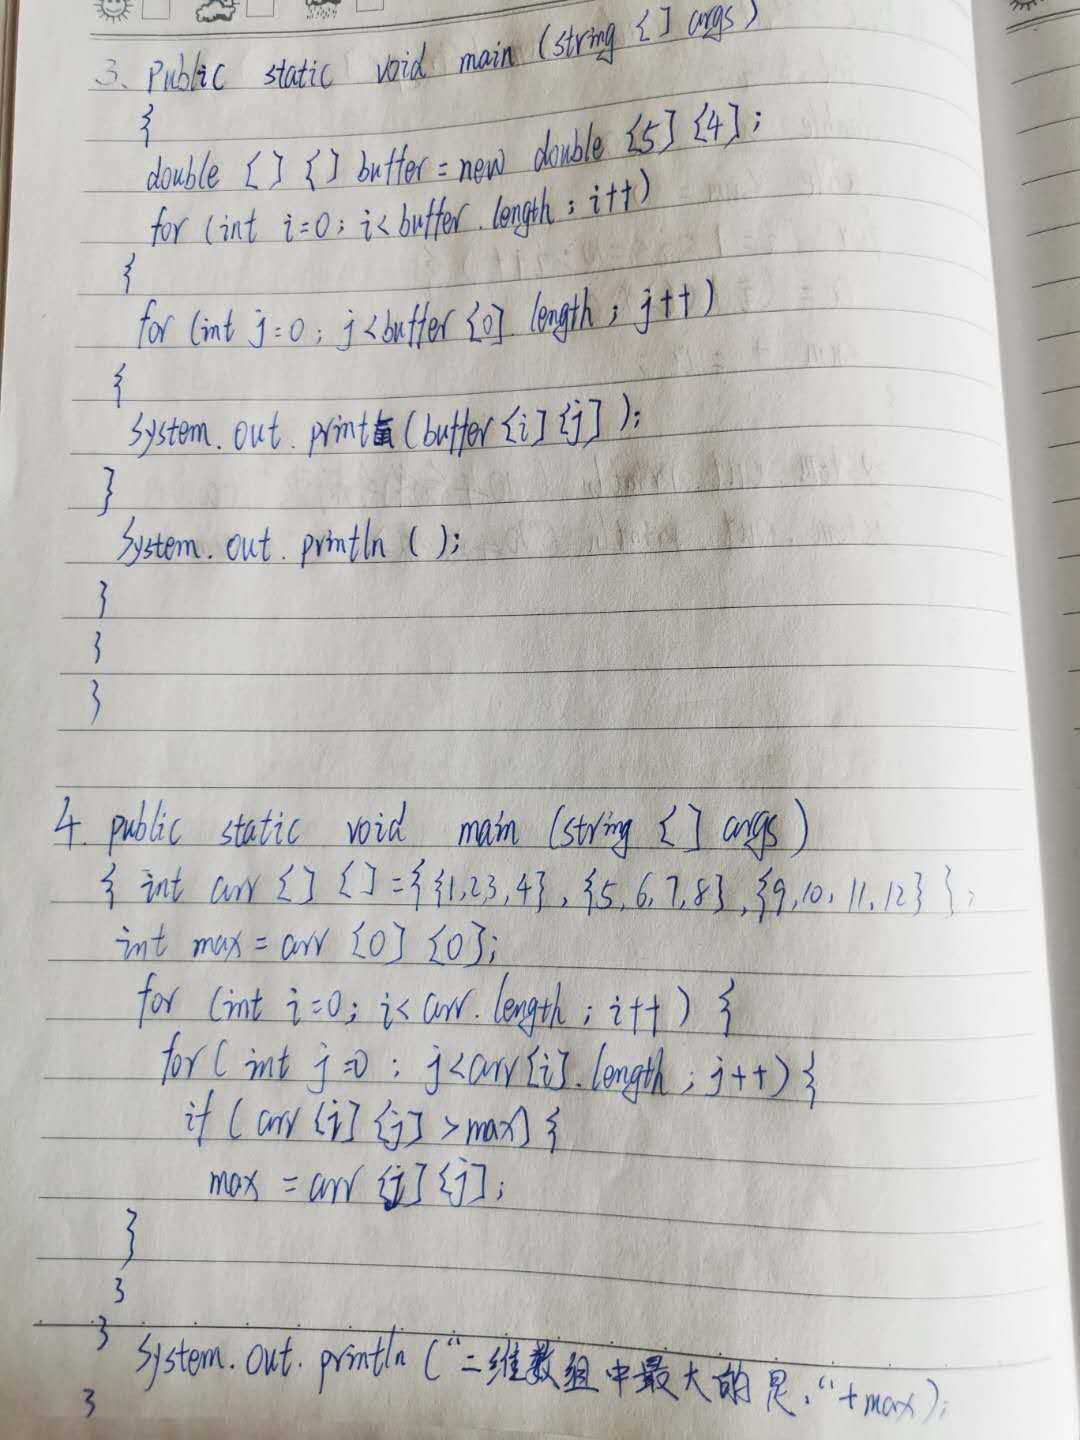 3、Public static void main (string {] args)
{
double {] {] buffer = new double {5] {4];
for (int i=0; i<buffer.length; i++)
{
for (int j=0; j<buffer {0].length; j++)
{
System.out.print(buffer{i]{j]);
}
System.out.println ( );
}
}
}
4. public static void main (string {] args)
{ int arr {] {] = {{1,2,3,4}, {5,6,7,8}, {9,10,11,12} };
int max = arr {0] {0];
for (int i=0; i< arr.length; i++) {
for ( int j=0; j<arr{i].length; j++) {
if ( arr {i] {j] >max) {
max = arr {j] {j];
}
}
} System.out.println (“二维数组中最大的是:“+max);
}